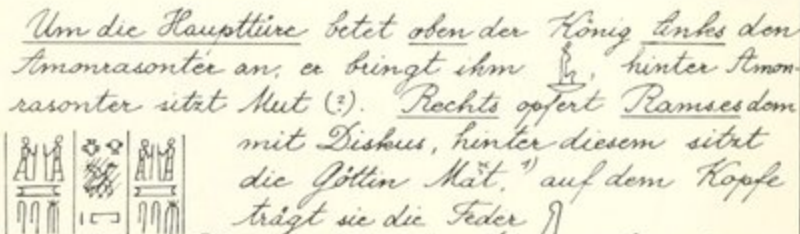 Um die Haupttüre betet oben der König links den
Amonrasonter an, er bringt ihm , hinter Amon-
rasonter sitzt Mut (?). Rechts opfert Ramses dem
mit Diskus, hinter diesem sitzt
die Göttin Mat, 1) auf dem Kopfe
trägt sie die Feder